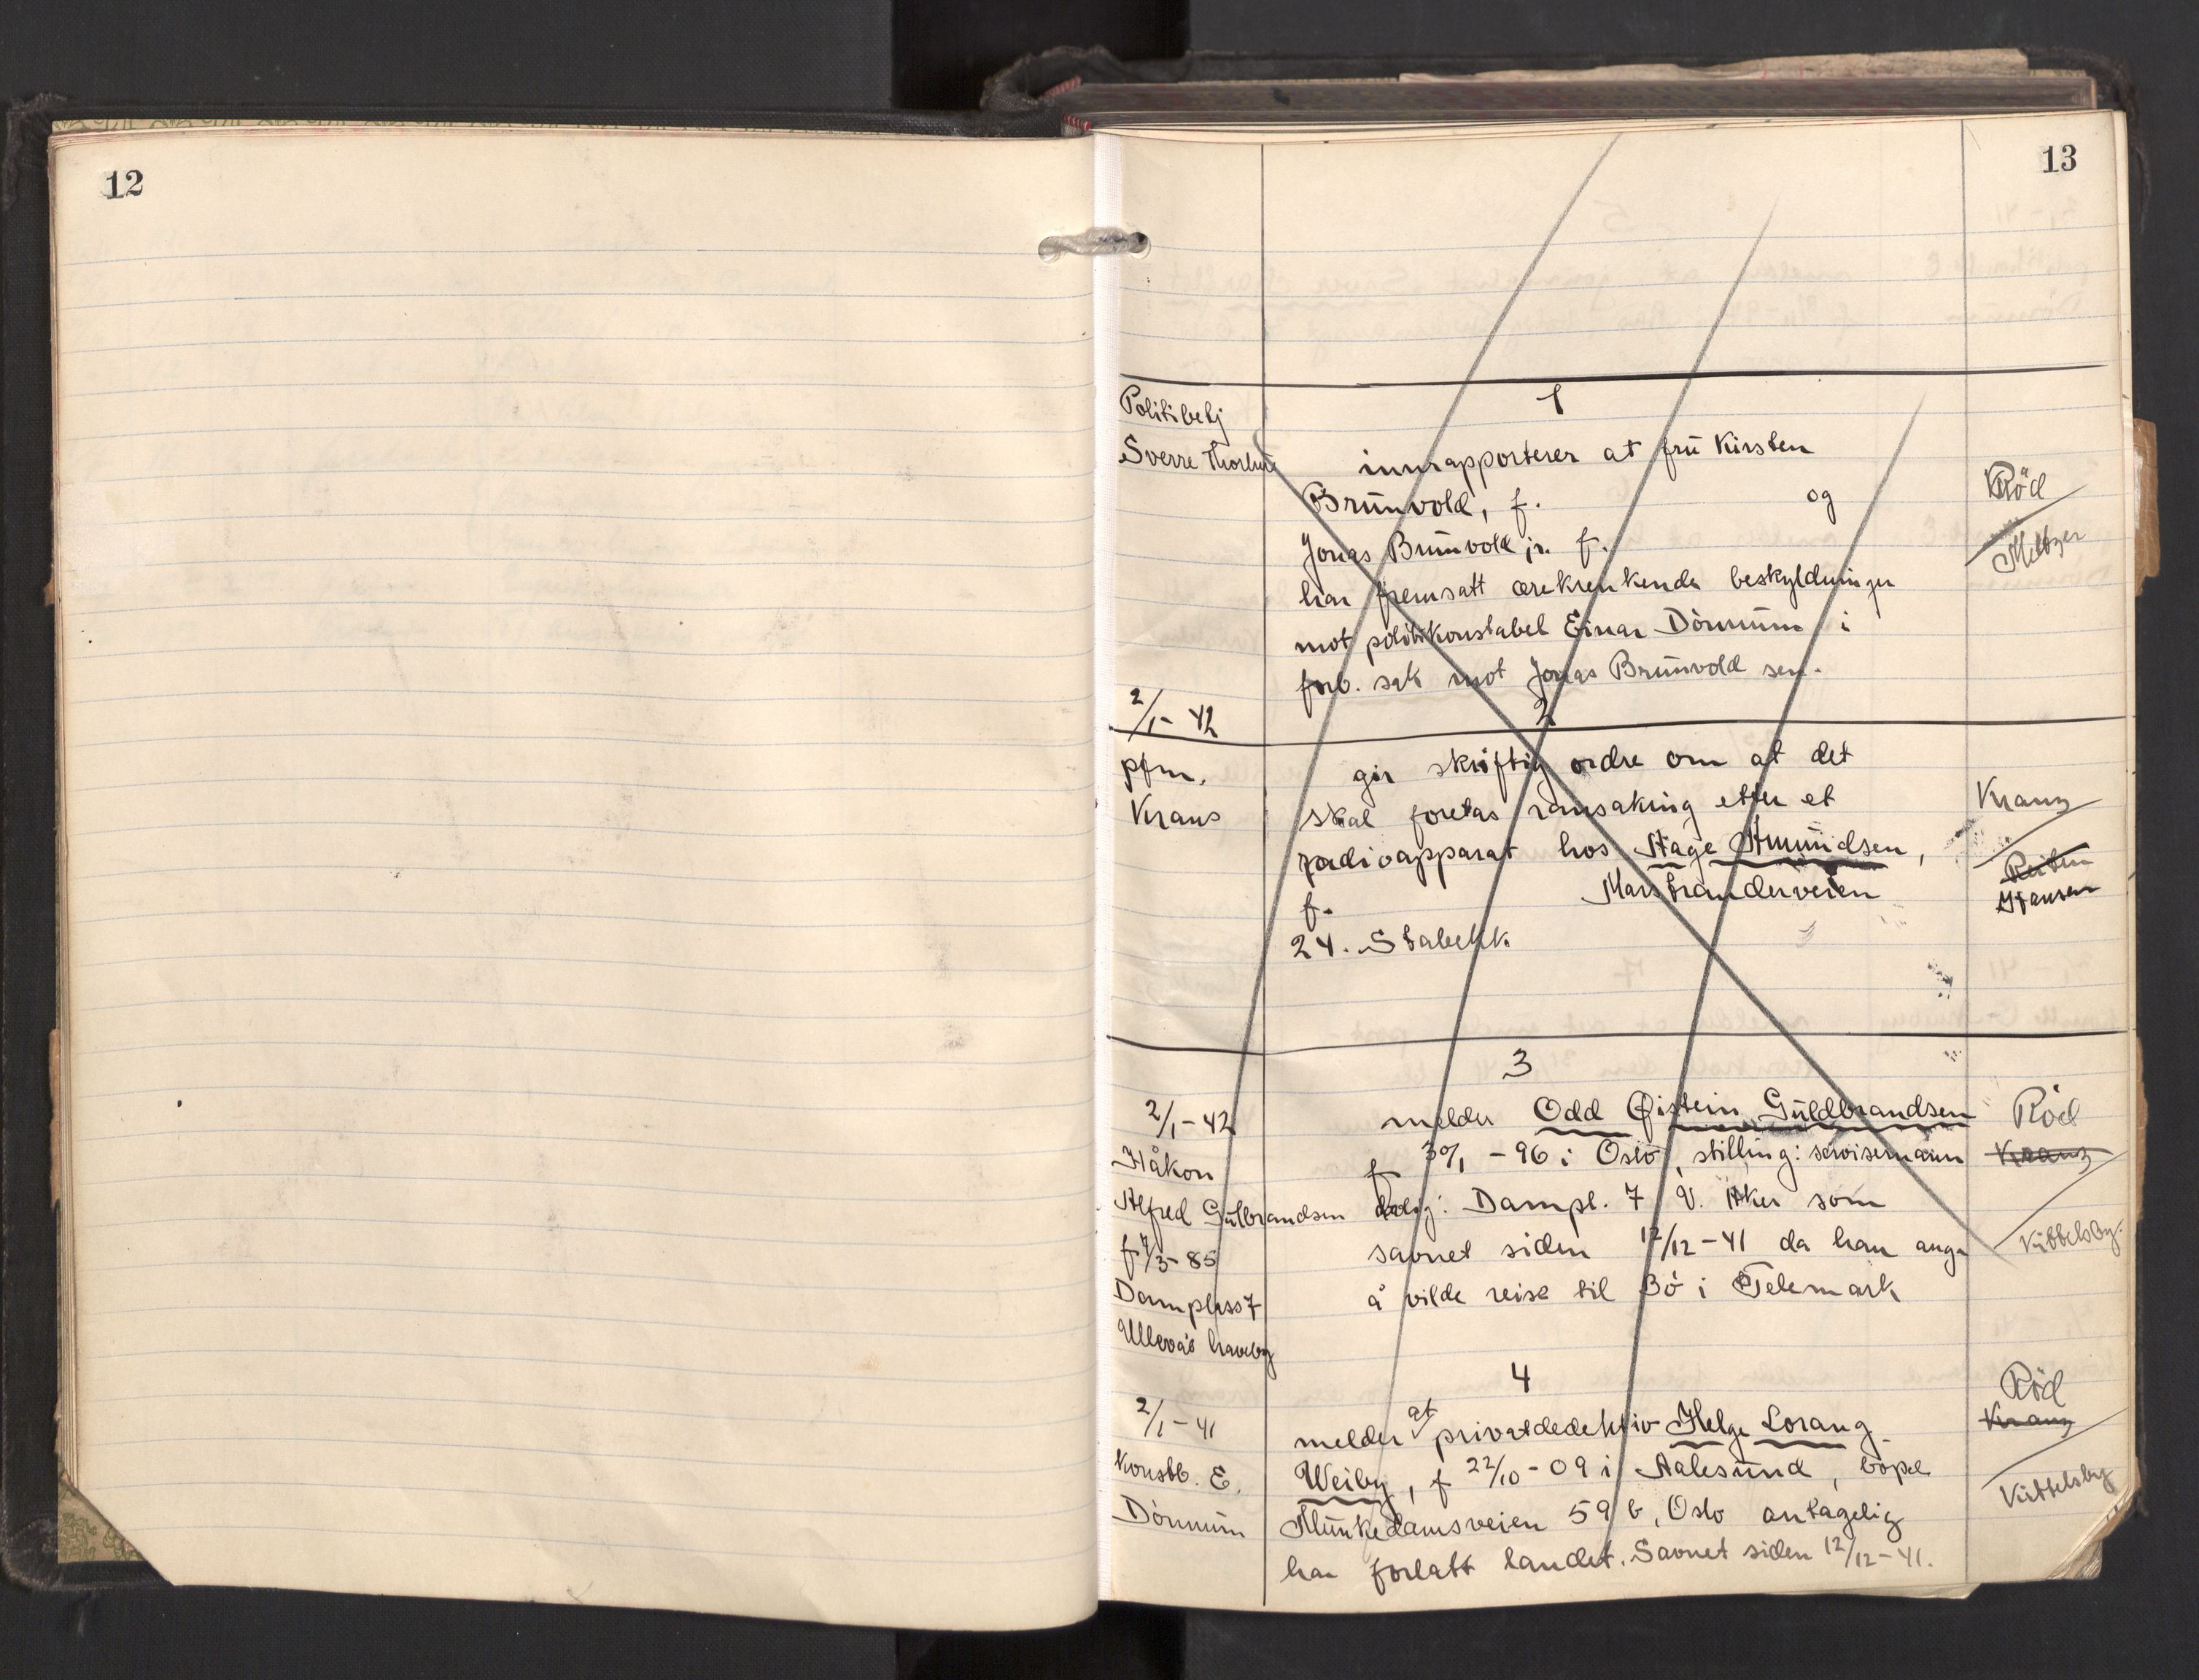 12
13
1
Politibetj
Sverre
innrapporterer at frü Kirsten
Brünvold, f. og
Jonas Brünvold jr. f.
har fremsatt ærekrenkende beskyldninger
mot politikonstabel Einar Dönnüm i
forb. sak mot Jonas Brünvold sen.
Röd
Meltzer
2/1-42
2
pfm.
Kraus
gir skriftig ordre om at det
skal foretas ransaking etter et
radioapparat hos Hage Amündsen,
f. Marstranderveien
24. Stabekk.
Kranz
Reiten
Hansen
3
2/1-42
Håkon
Alfred Gülbrandsen
f 7/3-85
Dampless 7
Ullevås haveby
melder Odd Øistein Güldbrandsen
f 30/1 -96 i Oslo, stilling: servisemann
bolig: Dampl. 7 V. Aker som
savnet siden 12/12-41 da han anga
å vilde reise til Bö i Telemark
Röd
Kranz
Kübbelsby.
4
2/1-41
Konstb. E.
Dönnüm
melder at privatdedektiv Helge Lorang
Weiby, f 22/10-09 i Aalesünd, bopel
Münkedamsveien 59 b, Oslo antagelig
har forlatt landet. Savnet siden 12/12-41.
Röd
Kranz
Küttelsby